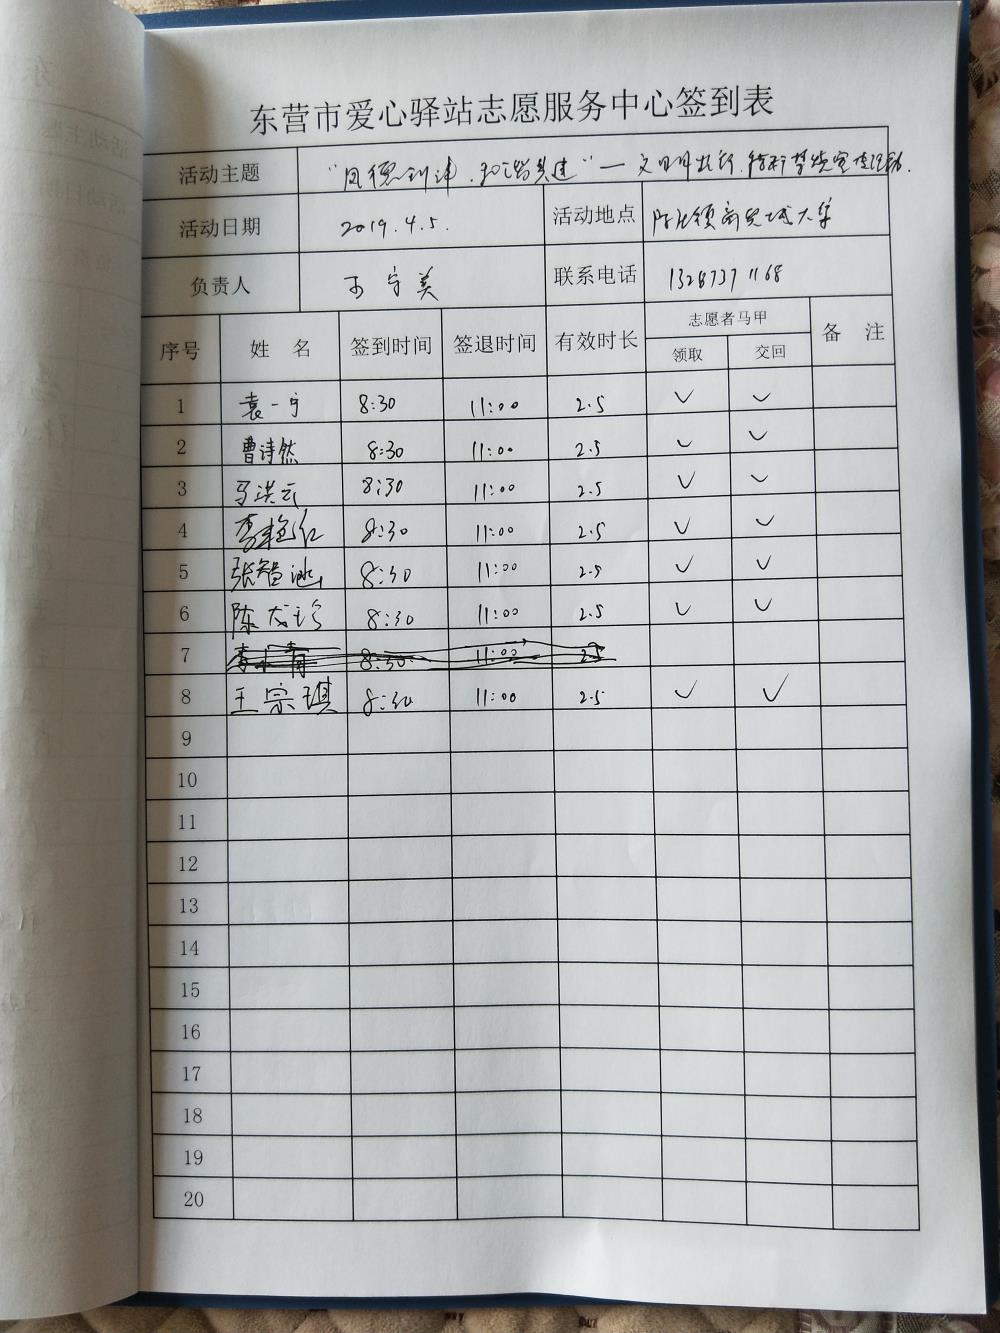 东营市爱心驿站志愿服务中心签到表
活动主题 "风德利津、和谐共建"—文明出行、
活动日期 2019.4.5. 活动地点
负责人 王守美 联系电话 13287371168
序号 姓 名 签到时间 签退时间 有效时长 志愿者马甲 备 注
领取 交回
1 袁一宁 8:30 11:00 2.5 ✓ ✓
2 曹诗然 8:30 11:00 2.5 ✓ ✓
3 马洪云 8:30 11:00 2.5 ✓ ✓
4 李艳红 8:30 11:00 2.5 ✓ ✓
5 张智涵 8:30 11:00 2.5 ✓ ✓
6 陈友珍 8:30 11:00 2.5 ✓ ✓
7 8:30 11:00 2.5
8 王宗琪 8:30 11:00 2.5 ✓ ✓
9
10
11
12
13
14
15
16
17
18
19
20